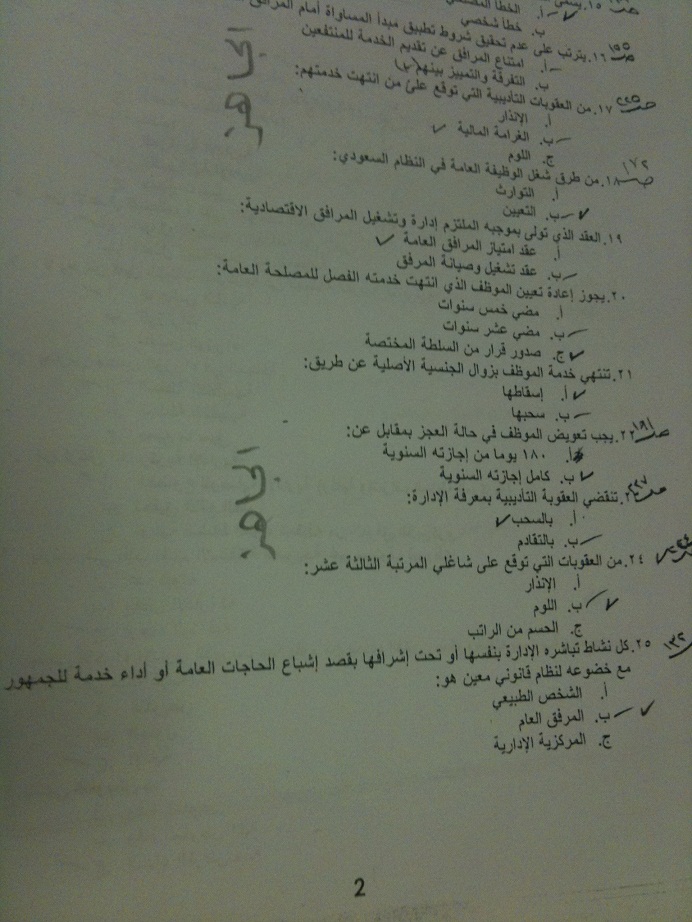 ١٥. يسمى
أ. الخطأ
ب. خطأ شخصي
١٦. يترتب على عدم تحقيق شروط تطبيق مبدأ المساواة أمام المرافق
أ. امتناع المرافق عن تقديم الخدمة للمنتفعين
ب. التفرقة والتمييز بينهم
ص ٢٢٥ ١٧. من العقوبات التأديبية التي توقع على من انتهت خدمتهم:
أ. الإنذار
ب. الغرامة المالية
ج. اللوم
ص ١٧٢ ١٨. من طرق شغل الوظيفة العامة في النظام السعودي:
أ. التوارث
ب. التعيين
١٩. العقد الذي تولى بموجبه الملتزم إدارة وتشغيل المرافق الاقتصادية:
أ. عقد امتياز المرافق العامة
ب. عقد تشغيل وصيانة المرفق
٢٠. يجوز إعادة تعيين الموظف الذي انتهت خدمته الفصل للمصلحة العامة:
أ. مضي خمس سنوات
ب. مضي عشر سنوات
ج. صدور قرار من السلطة المختصة
٢١. تنتهي خدمة الموظف بزوال الجنسية الأصلية عن طريق:
أ. إسقاطها
ب. سحبها
ص ١٩١ ٢٢. يجب تعويض الموظف في حالة العجز بمقابل عن:
أ. ١٨٠ يوما من إجازته السنوية
ب. كامل إجازته السنوية
تنقضي العقوبة التأديبية بمعرفة الإدارة:
أ. بالسحب
ب. بالتقادم
٢٤. من العقوبات التي توقع على شاغلي المرتبة الثالثة عشر:
أ. الإنذار
ب. اللوم
ج. الحسم من الراتب
١٣٢ ٢٥. كل نشاط تباشره الإدارة بنفسها أو تحت إشرافها بقصد إشباع الحاجات العامة أو أداء خدمة للجمهور
مع خضوعه لنظام قانوني معين هو:
أ. الشخص الطبيعي
ب. المرفق العام
ج. المركزية الإدارية
2